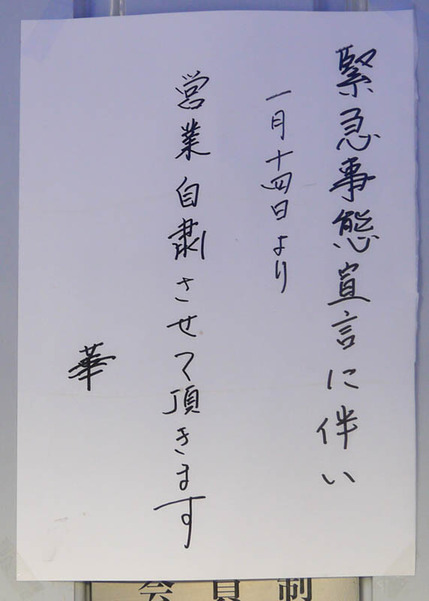 緊急事態宣言に伴い
一月十四日より
営業自粛させて頂きます
華
会員制